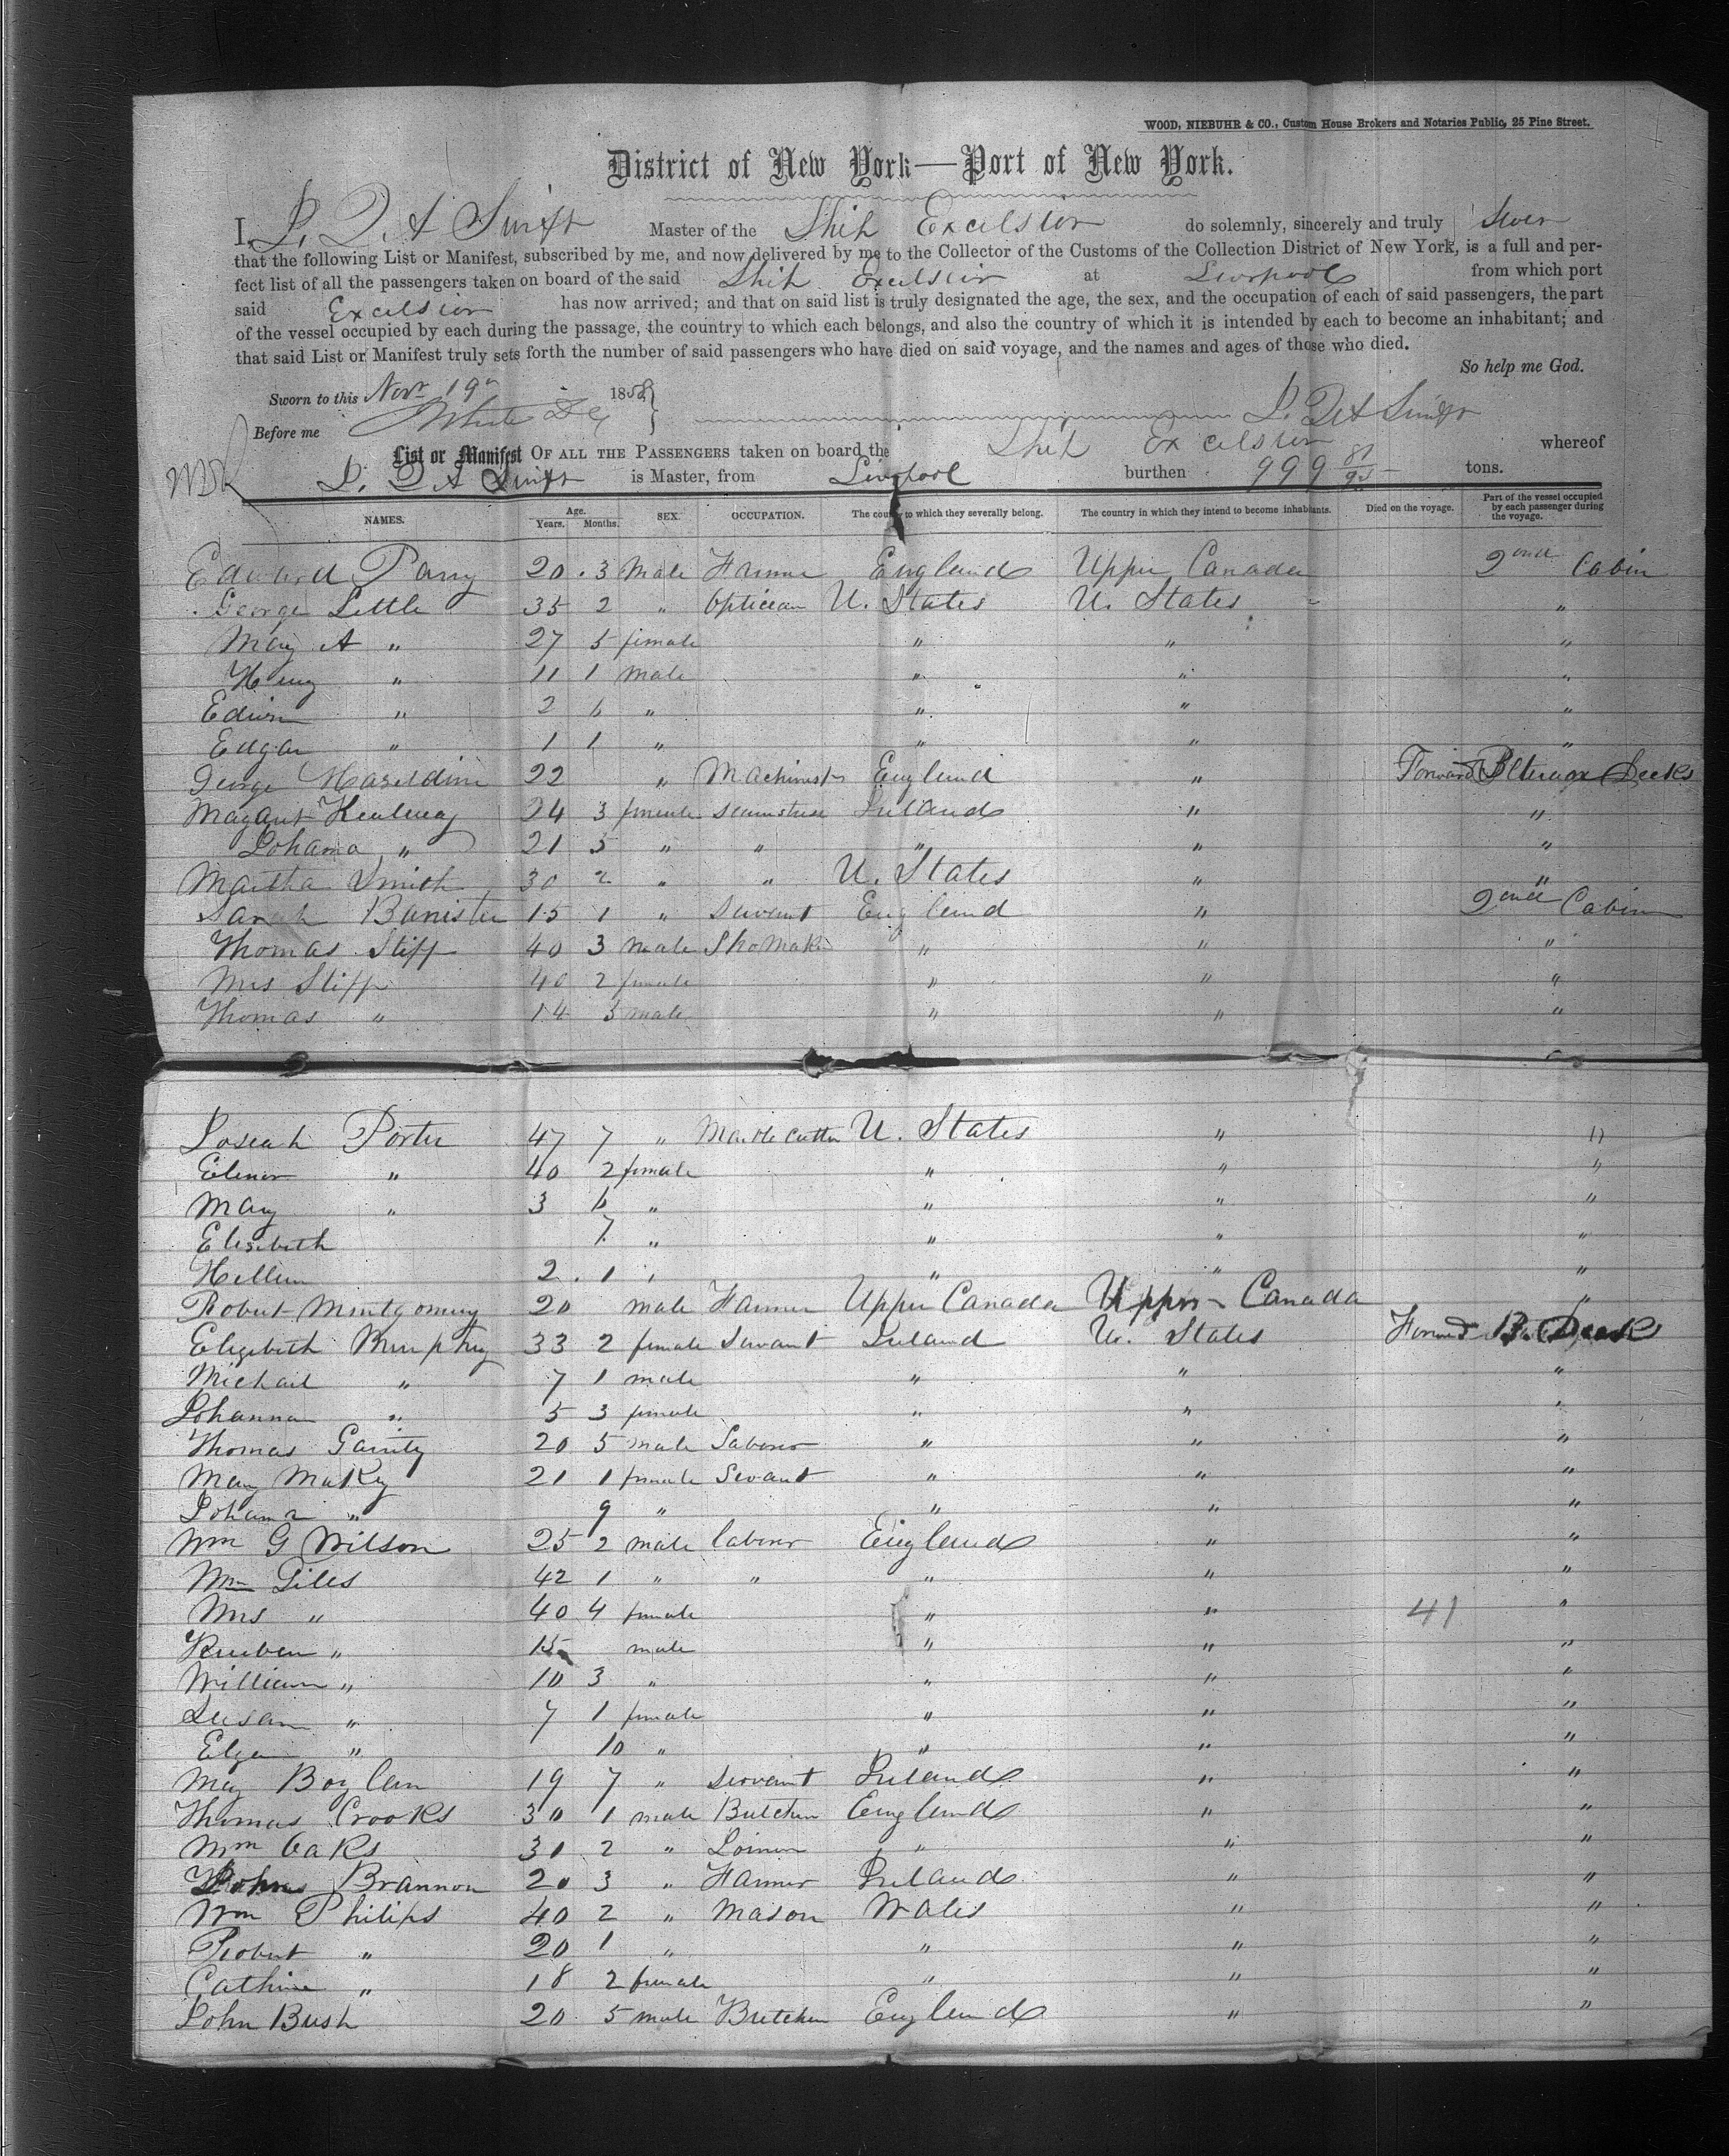 WOOD, NIEBUHR & CO., Custom House Brokers and Notaries Public, 25 Pine Street.
District of New York—Port of New York.
I, Swift Master of the Ship Excelsior do solemnly, sincerely and truly swear
that the following List or Manifest, subscribed by me, and now delivered by me to the Collector of the Customs of the Collection District of New York, is a full and per-
fect list of all the passengers taken on board of the said Ship Excelsior at Liverpool from which port
said Excelsior has now arrived; and that on said list is truly designated the age, the sex, and the occupation of each of said passengers, the part
of the vessel occupied by each during the passage, the country to which each belongs, and also the country of which it is intended by each to become an inhabitant; and
that said List or Manifest truly sets forth the number of said passengers who have died on said voyage, and the names and ages of those who died.
So help me God.
Sworn to this Novr 19 185
Before me White Swift
List or Manifest OF ALL THE PASSENGERS taken on board the Ship Excelsior whereof
Swift is Master, from Liverpool burthen 999 tons.
NAMES. Age. Years. Months. SEX. OCCUPATION. The country to which they severally belong. The country in which they intend to become inhabitants. Died on the voyage. Part of the vessel occupied by each passenger during the voyage.
Edward Parry 20 3 male Farmer England Upper Canada 2nd Cabin
George Little 35 2 " Optician U. States U. States "
Mary A " 27 5 female " " "
Henry " 11 1 male " " "
Edwin " 2 6 " " " "
Edgar " 1 1 " " " "
George Haseldine 22 " Machinist England " Forward Between Decks
24 3 female seamstress Ireland " "
Johana " 21 5 " " " " "
Martha Smith 30 2 " " U. States " "
Sarah Banister 15 1 " servant England " 2nd Cabin
Thomas Stiff 40 3 male Shomaker " " "
Mrs Stiff 40 2 female " " "
Thomas " 14 5 male " " "
Joseah Porter 47 7 " Marble cutter U. States " "
Elenor " 40 2 female " " "
Mary " 3 6 " " " "
Elisebeth 7 " " " "
Hellen 2 1 " " " "
Robert Montgomery 20 male Farmer Upper Canada Upper Canada "
Elizebeth Murphy 33 2 female servant Ireland U. States Forward Deck
Michail " 7 1 male " " "
Johanna " 5 3 female " " "
Thomas Garrity 20 5 male Laborer " " "
Mary 21 1 female Servant " " "
Johana " 9 " " " "
Wm G Wilson 25 2 male laborer England " "
Wm Giles 42 1 " " " " "
Mrs " 40 4 female " " 41 "
Reuben " 15 male " " "
William " 10 3 " " " "
Susan " 7 1 female " " "
Eliza " 10 " " " "
Mary Boylan 19 7 " servant Ireland " "
Thomas Crooks 30 1 male Butcher England " "
Wm Oaks 31 2 " " " "
Brannon 20 3 " Farmer Ireland " "
Wm Philips 40 2 " Mason Wales " "
Robert " 20 1 " " " "
Cathine " 18 2 female " " "
John Bush 20 5 male Butcher England " "